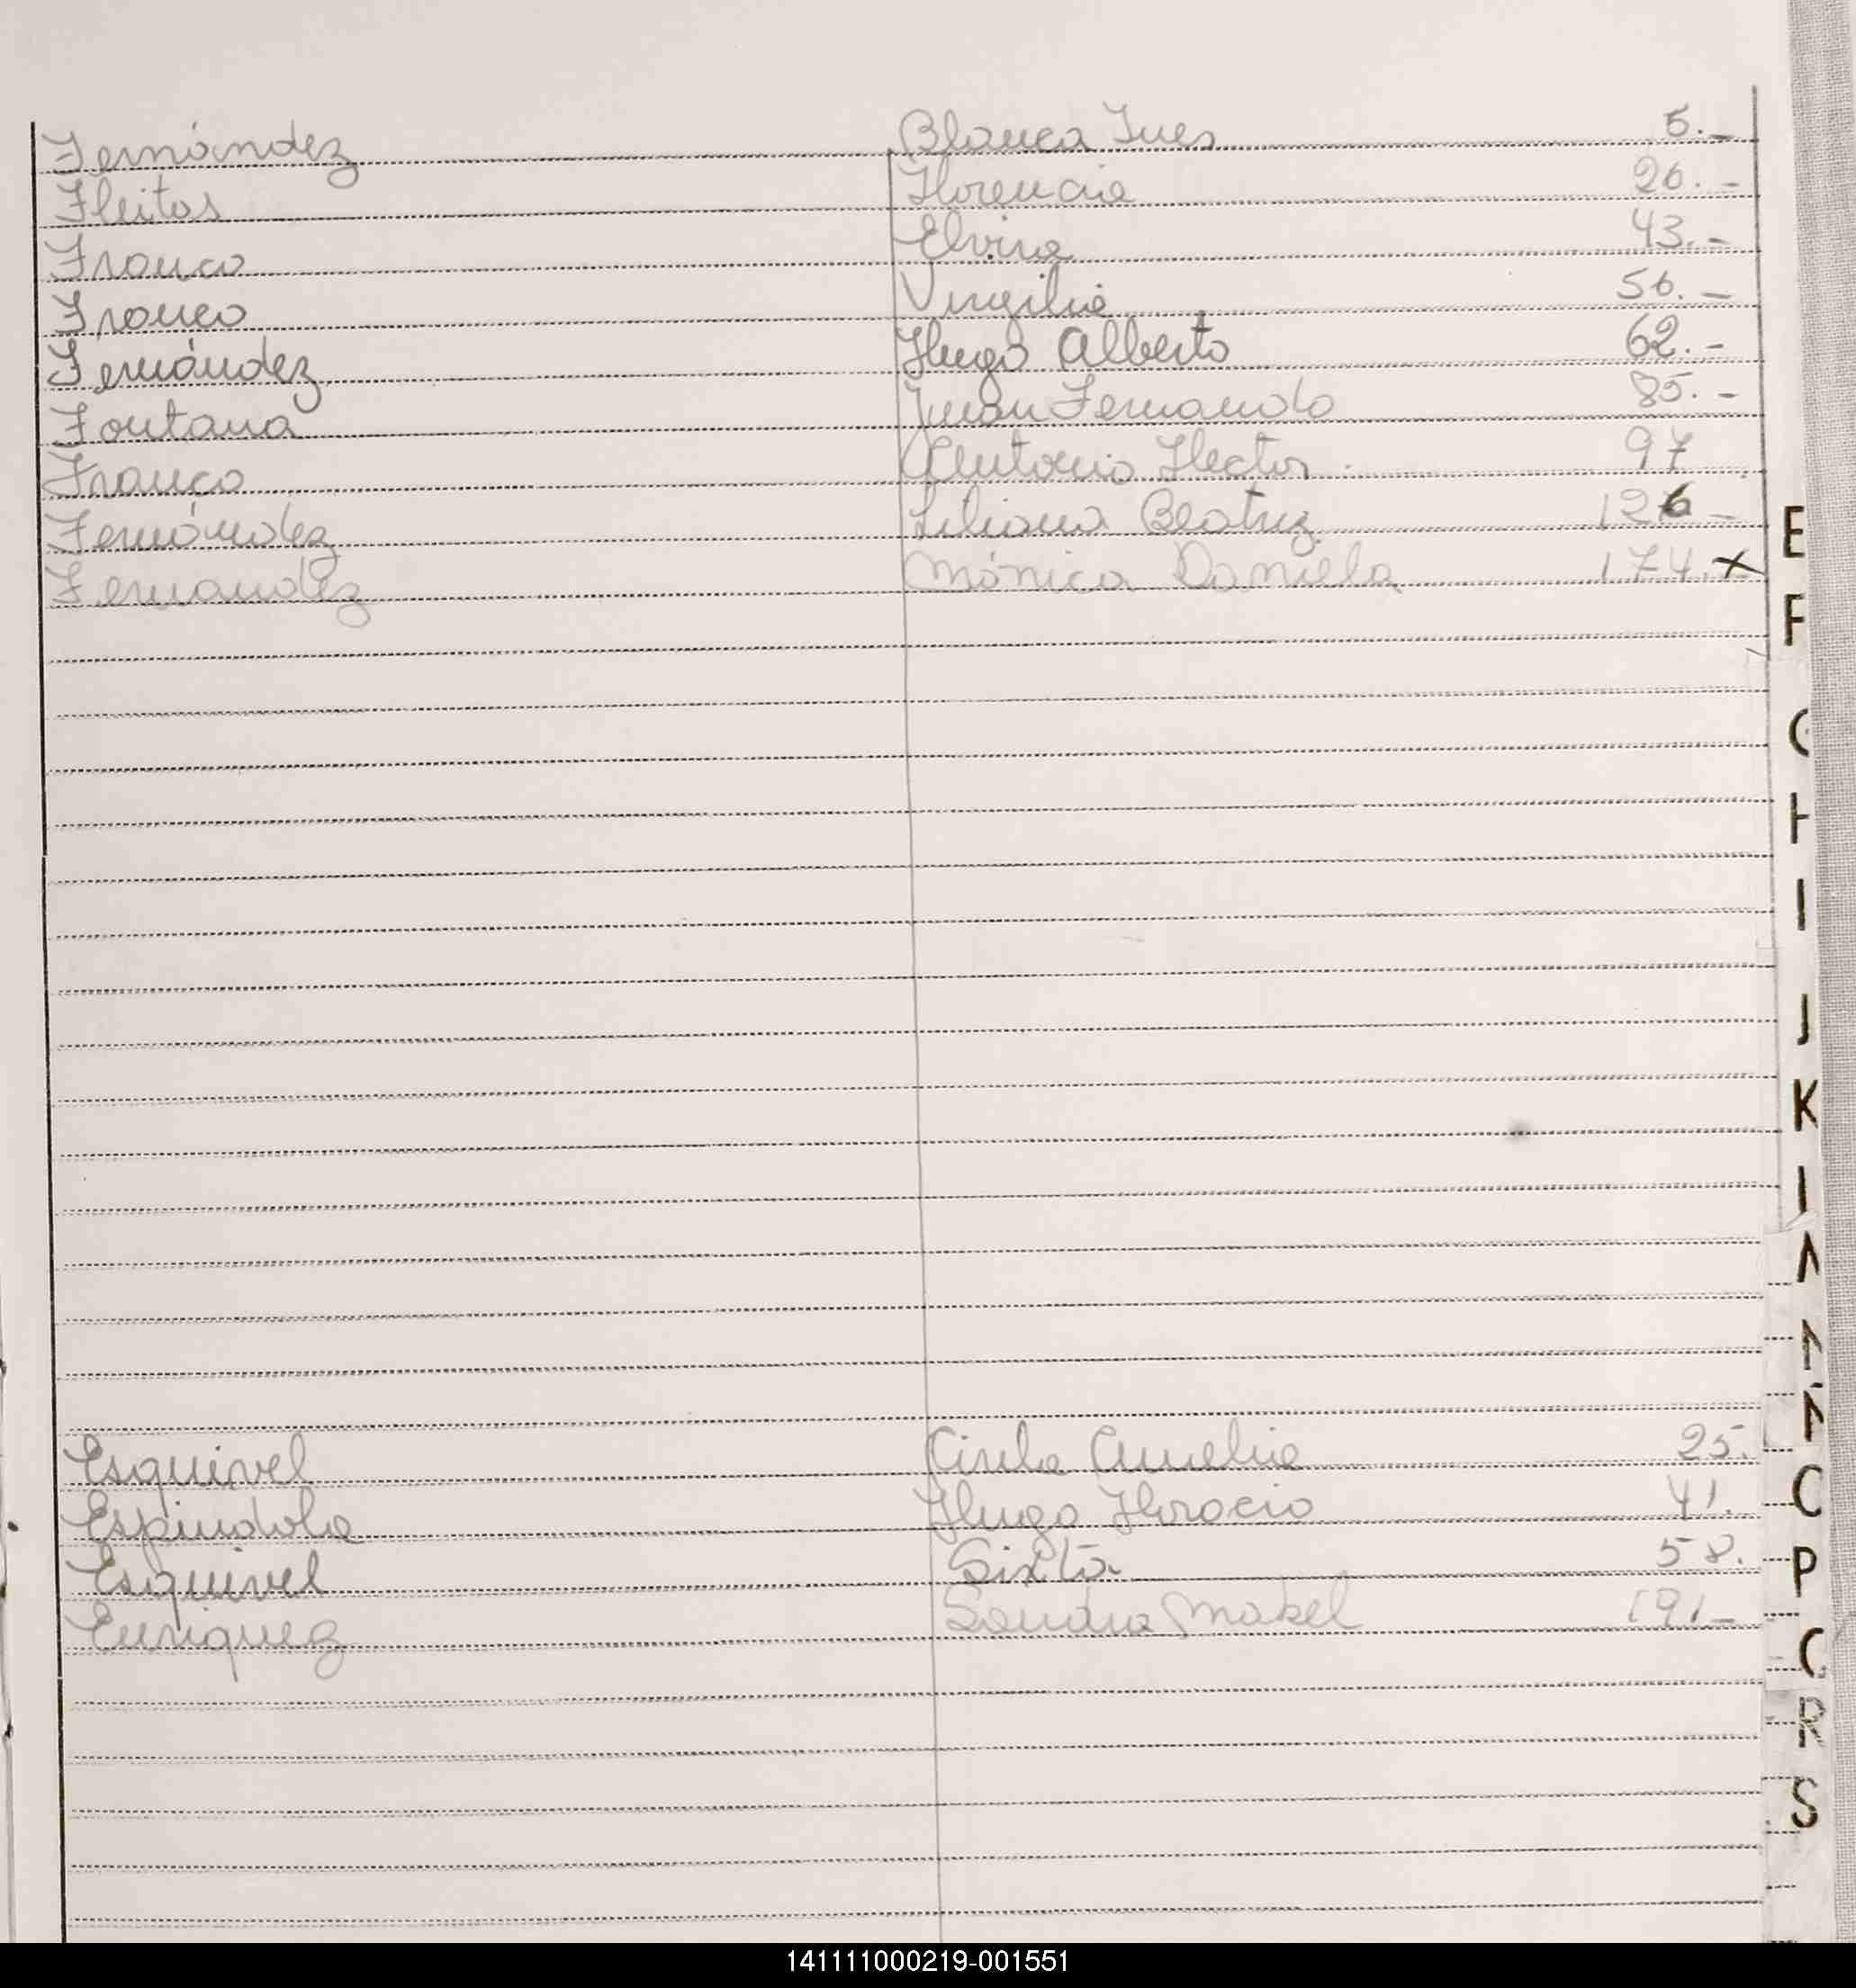 Fernández Blanca Ines 5.-
Fleitas Florencia 26.-
Franco Elvira 43.-
Franco Virgilia 56.-
Fernández Hugo Alberto 62.-
Fontana Juan Fernando 85.-
Franco Antonio Hector 97
Fernández Liliana Beatriz 126-
Fernandez Mónica Daniela 174.x
Esquivel Amelia 25.
Espindola Hugo Horacio 41.
Esquivel Sixta 58.
Enriquez Sandra Mabel 191-
E
F
G
H
I
J
K
L
P
R
S
141111000219-001551